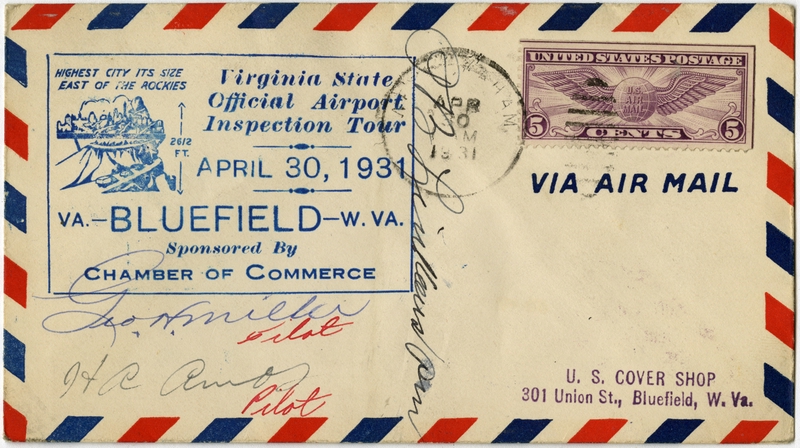 HIGHEST CITY ITS SIZE
EAST OF THE ROCKIES
2612
FT.
Virginia State
Official Airport
Inspection Tour
APRIL 30, 1931
VA.–BLUEFIELD–W. VA.
Sponsored By
CHAMBER OF COMMERCE
Geo. H. Miller
Pilot
H C
Pilot
HAM
APR
M
1931
UNITED STATES POSTAGE
U.S.
AIR
MAIL
5 CENTS 5
VIA AIR MAIL
U. S. COVER SHOP
301 Union St., Bluefield, W. Va.